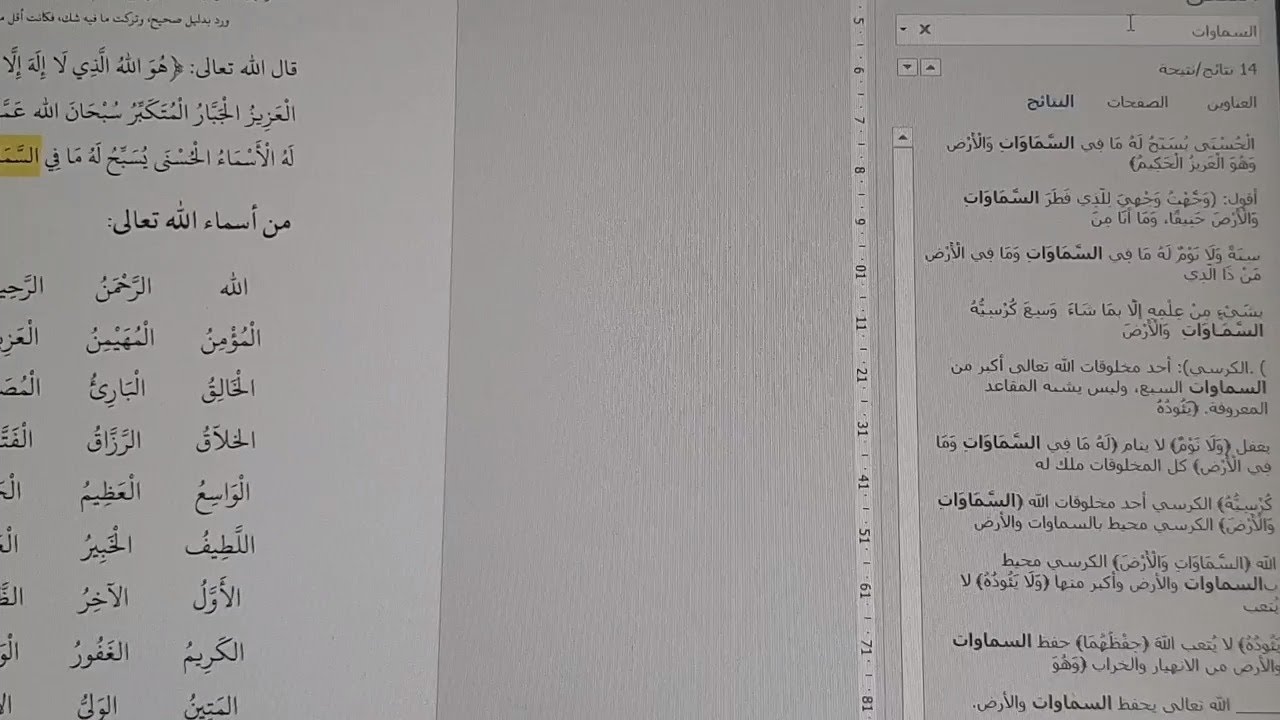 ورد بدليل صحيح، وتركت ما فيه شك، فكانت أقل
قال الله تعالى: ﴿هُوَ اللهُ الَّذِي لَا إِلَهَ إِلَّا
الْعَزِيزُ الْجَبَّارُ الْمُتَكَبِّرُ سُبْحَانَ الله
لَهُ الْأَسْمَاءُ الْحُسْنَى يُسَبِّحُ لَهُ مَا فِي
من أسماء الله تعالى:
الله الرَّحْمَنُ
الْمُؤْمِنُ الْمُهَيْمِنُ
الْخَالِقُ الْبَارِئُ
الخلاَّقُ الرَّزَّاقُ
الْوَاسِعُ الْعَظِيمُ
اللَّطِيفُ الْخَبِيرُ
الأَوَّلُ الآخِرُ
الكَرِيمُ الغَفُورُ
المَتِينُ الوَلِيُّ
5
6
7
8
9
10
11
12
13
14
15
16
17
18
السماوات
14 نتائج/نتيجة
العناوين الصفحات النتائج
الْحُسْنَى يُسَبِّحُ لَهُ مَا فِي السَّمَاوَاتِ وَالْأَرْضِ
وَهُوَ الْعَزِيزُ الْحَكِيمُ﴾
أقول: (وَجَّهْتُ وَجْهِيَ لِلَّذِي فَطَرَ السَّمَاوَاتِ
وَالْأَرْضَ حَنِيفًا، وَمَا أَنَا مِنَ
سِنَةٌ وَلَا نَوْمٌ لَهُ مَا فِي السَّمَاوَاتِ وَمَا فِي الْأَرْضِ
مَنْ ذَا الَّذِي
بِشَيْءٍ مِنْ عِلْمِهِ إِلَّا بِمَا شَاءَ وَسِعَ كُرْسِيُّهُ
السَّمَاوَاتِ وَالْأَرْضَ
) .الكرسي): أحد مخلوقات الله تعالى أكبر من
السماوات السبع، وليس يشبه المقاعد
المعروفة. ﴿يَئُودُهُ
يغفل ﴿وَلَا نَوْمٌ﴾ لا ينام ﴿لَهُ مَا فِي السَّمَاوَاتِ وَمَا
فِي الْأَرْضِ﴾ كل المخلوقات ملك له
كُرْسِيُّهُ﴾ الكرسي أحد مخلوقات الله ﴿السَّمَاوَاتِ
وَالْأَرْضَ﴾ الكرسي محيط بالسماوات والأرض
الله ﴿السَّمَاوَاتِ وَالْأَرْضَ﴾ الكرسي محيط
بالسماوات والأرض وأكبر منها ﴿وَلَا يَئُودُهُ﴾ لا
يُتعب
يَئُودُهُ﴾ لا يُتعب اللهَ ﴿حِفْظُهُمَا﴾ حفظ السماوات
والأرض من الانهيار والخراب ﴿وَهُوَ
____ الله تعالى يحفظ السماوات والأرض.